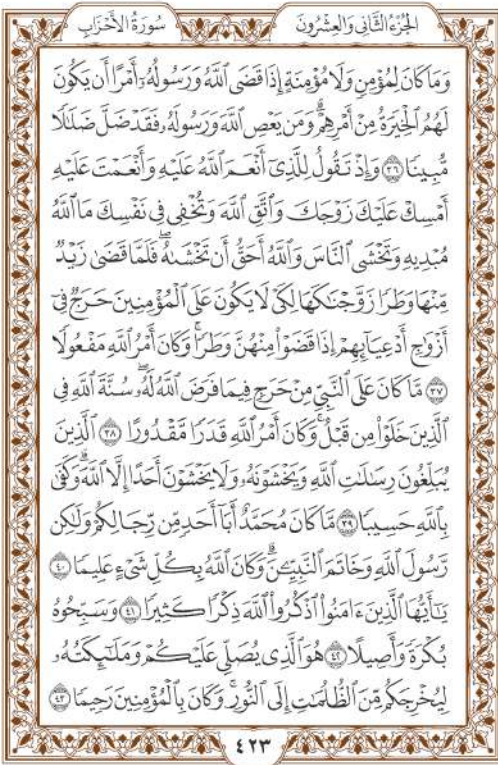 الجُزْءُ الثَّانِى وَالعِشْرُونَ
سُورَةُ الأَحْزَابِ
وَمَا كَانَ لِمُؤْمِنٍ وَلَا مُؤْمِنَةٍ إِذَا قَضَى ٱللَّهُ وَرَسُولُهُۥٓ أَمْرًا أَن يَكُونَ
لَهُمُ ٱلْخِيَرَةُ مِنْ أَمْرِهِمْۗ وَمَن يَعْصِ ٱللَّهَ وَرَسُولَهُۥ فَقَدْ ضَلَّ ضَلَٰلًا
مُّبِينًا ٣٦ وَإِذْ تَقُولُ لِلَّذِىٓ أَنْعَمَ ٱللَّهُ عَلَيْهِ وَأَنْعَمْتَ عَلَيْهِ
أَمْسِكْ عَلَيْكَ زَوْجَكَ وَٱتَّقِ ٱللَّهَ وَتُخْفِى فِى نَفْسِكَ مَا ٱللَّهُ
مُبْدِيهِ وَتَخْشَى ٱلنَّاسَ وَٱللَّهُ أَحَقُّ أَن تَخْشَىٰهُۖ فَلَمَّا قَضَىٰ زَيْدٌ
مِّنْهَا وَطَرًا زَوَّجْنَٰكَهَا لِكَىْ لَا يَكُونَ عَلَى ٱلْمُؤْمِنِينَ حَرَجٌ فِىٓ
أَزْوَٰجِ أَدْعِيَآئِهِمْ إِذَا قَضَوْا۟ مِنْهُنَّ وَطَرًاۚ وَكَانَ أَمْرُ ٱللَّهِ مَفْعُولًا
٣٧ مَّا كَانَ عَلَى ٱلنَّبِىِّ مِنْ حَرَجٍ فِيمَا فَرَضَ ٱللَّهُ لَهُۥۖ سُنَّةَ ٱللَّهِ فِى
ٱلَّذِينَ خَلَوْا۟ مِن قَبْلُۚ وَكَانَ أَمْرُ ٱللَّهِ قَدَرًا مَّقْدُورًا ٣٨ ٱلَّذِينَ
يُبَلِّغُونَ رِسَٰلَٰتِ ٱللَّهِ وَيَخْشَوْنَهُۥ وَلَا يَخْشَوْنَ أَحَدًا إِلَّا ٱللَّهَۗ وَكَفَىٰ
بِٱللَّهِ حَسِيبًا ٣٩ مَّا كَانَ مُحَمَّدٌ أَبَآ أَحَدٍ مِّن رِّجَالِكُمْ وَلَٰكِن
رَّسُولَ ٱللَّهِ وَخَاتَمَ ٱلنَّبِيِّـۧنَۗ وَكَانَ ٱللَّهُ بِكُلِّ شَىْءٍ عَلِيمًا ٤٠
يَٰٓأَيُّهَا ٱلَّذِينَ ءَامَنُوا۟ ٱذْكُرُوا۟ ٱللَّهَ ذِكْرًا كَثِيرًا ٤١ وَسَبِّحُوهُ
بُكْرَةً وَأَصِيلًا ٤٢ هُوَ ٱلَّذِى يُصَلِّى عَلَيْكُمْ وَمَلَٰٓئِكَتُهُۥ
لِيُخْرِجَكُم مِّنَ ٱلظُّلُمَٰتِ إِلَى ٱلنُّورِۚ وَكَانَ بِٱلْمُؤْمِنِينَ رَحِيمًا ٤٣
٤٢٣